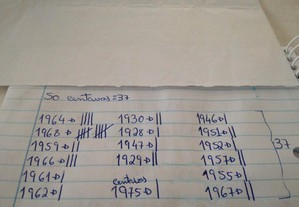 50 centavos = 37
1964 → |||| 1930 → || 1946 → |
1968 → 卌 卌 1928 → | 1951 → ||
1959 → || 1947 → | 1952 → |
1966 → ||| 1929 → || 1957 → || 37
1961 → | centavos 1955 → |
1962 → | 1975 → | 1967 → ||